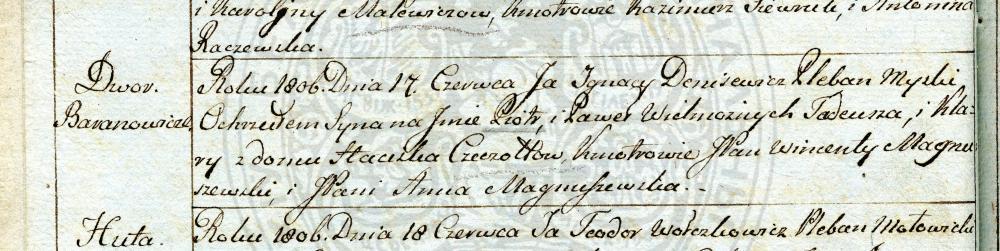 i Karoliny Malewiczow, Kmotrowie Kazimierz Siewruk, i Antonina
Raczewska.
Dwor. Roku 1806. Dnia 17 Czerwca Ja Ignacy Denisewicz Pleban Myski
Baranowicze. Ochrzciłem Syna na Jmie Piotr, i Paweł Wielmożnych Tadeusza, i Kla-
ry z domu Haciska Czeczottow, Kmotrowie JPan Wincenty Magnu
szewski, i JPani Anna Magnuszewska. -
Huta. Roku 1806. Dnia 18 Czerwca Ja Teodor Wołczkowicz Pleban Mołowicki